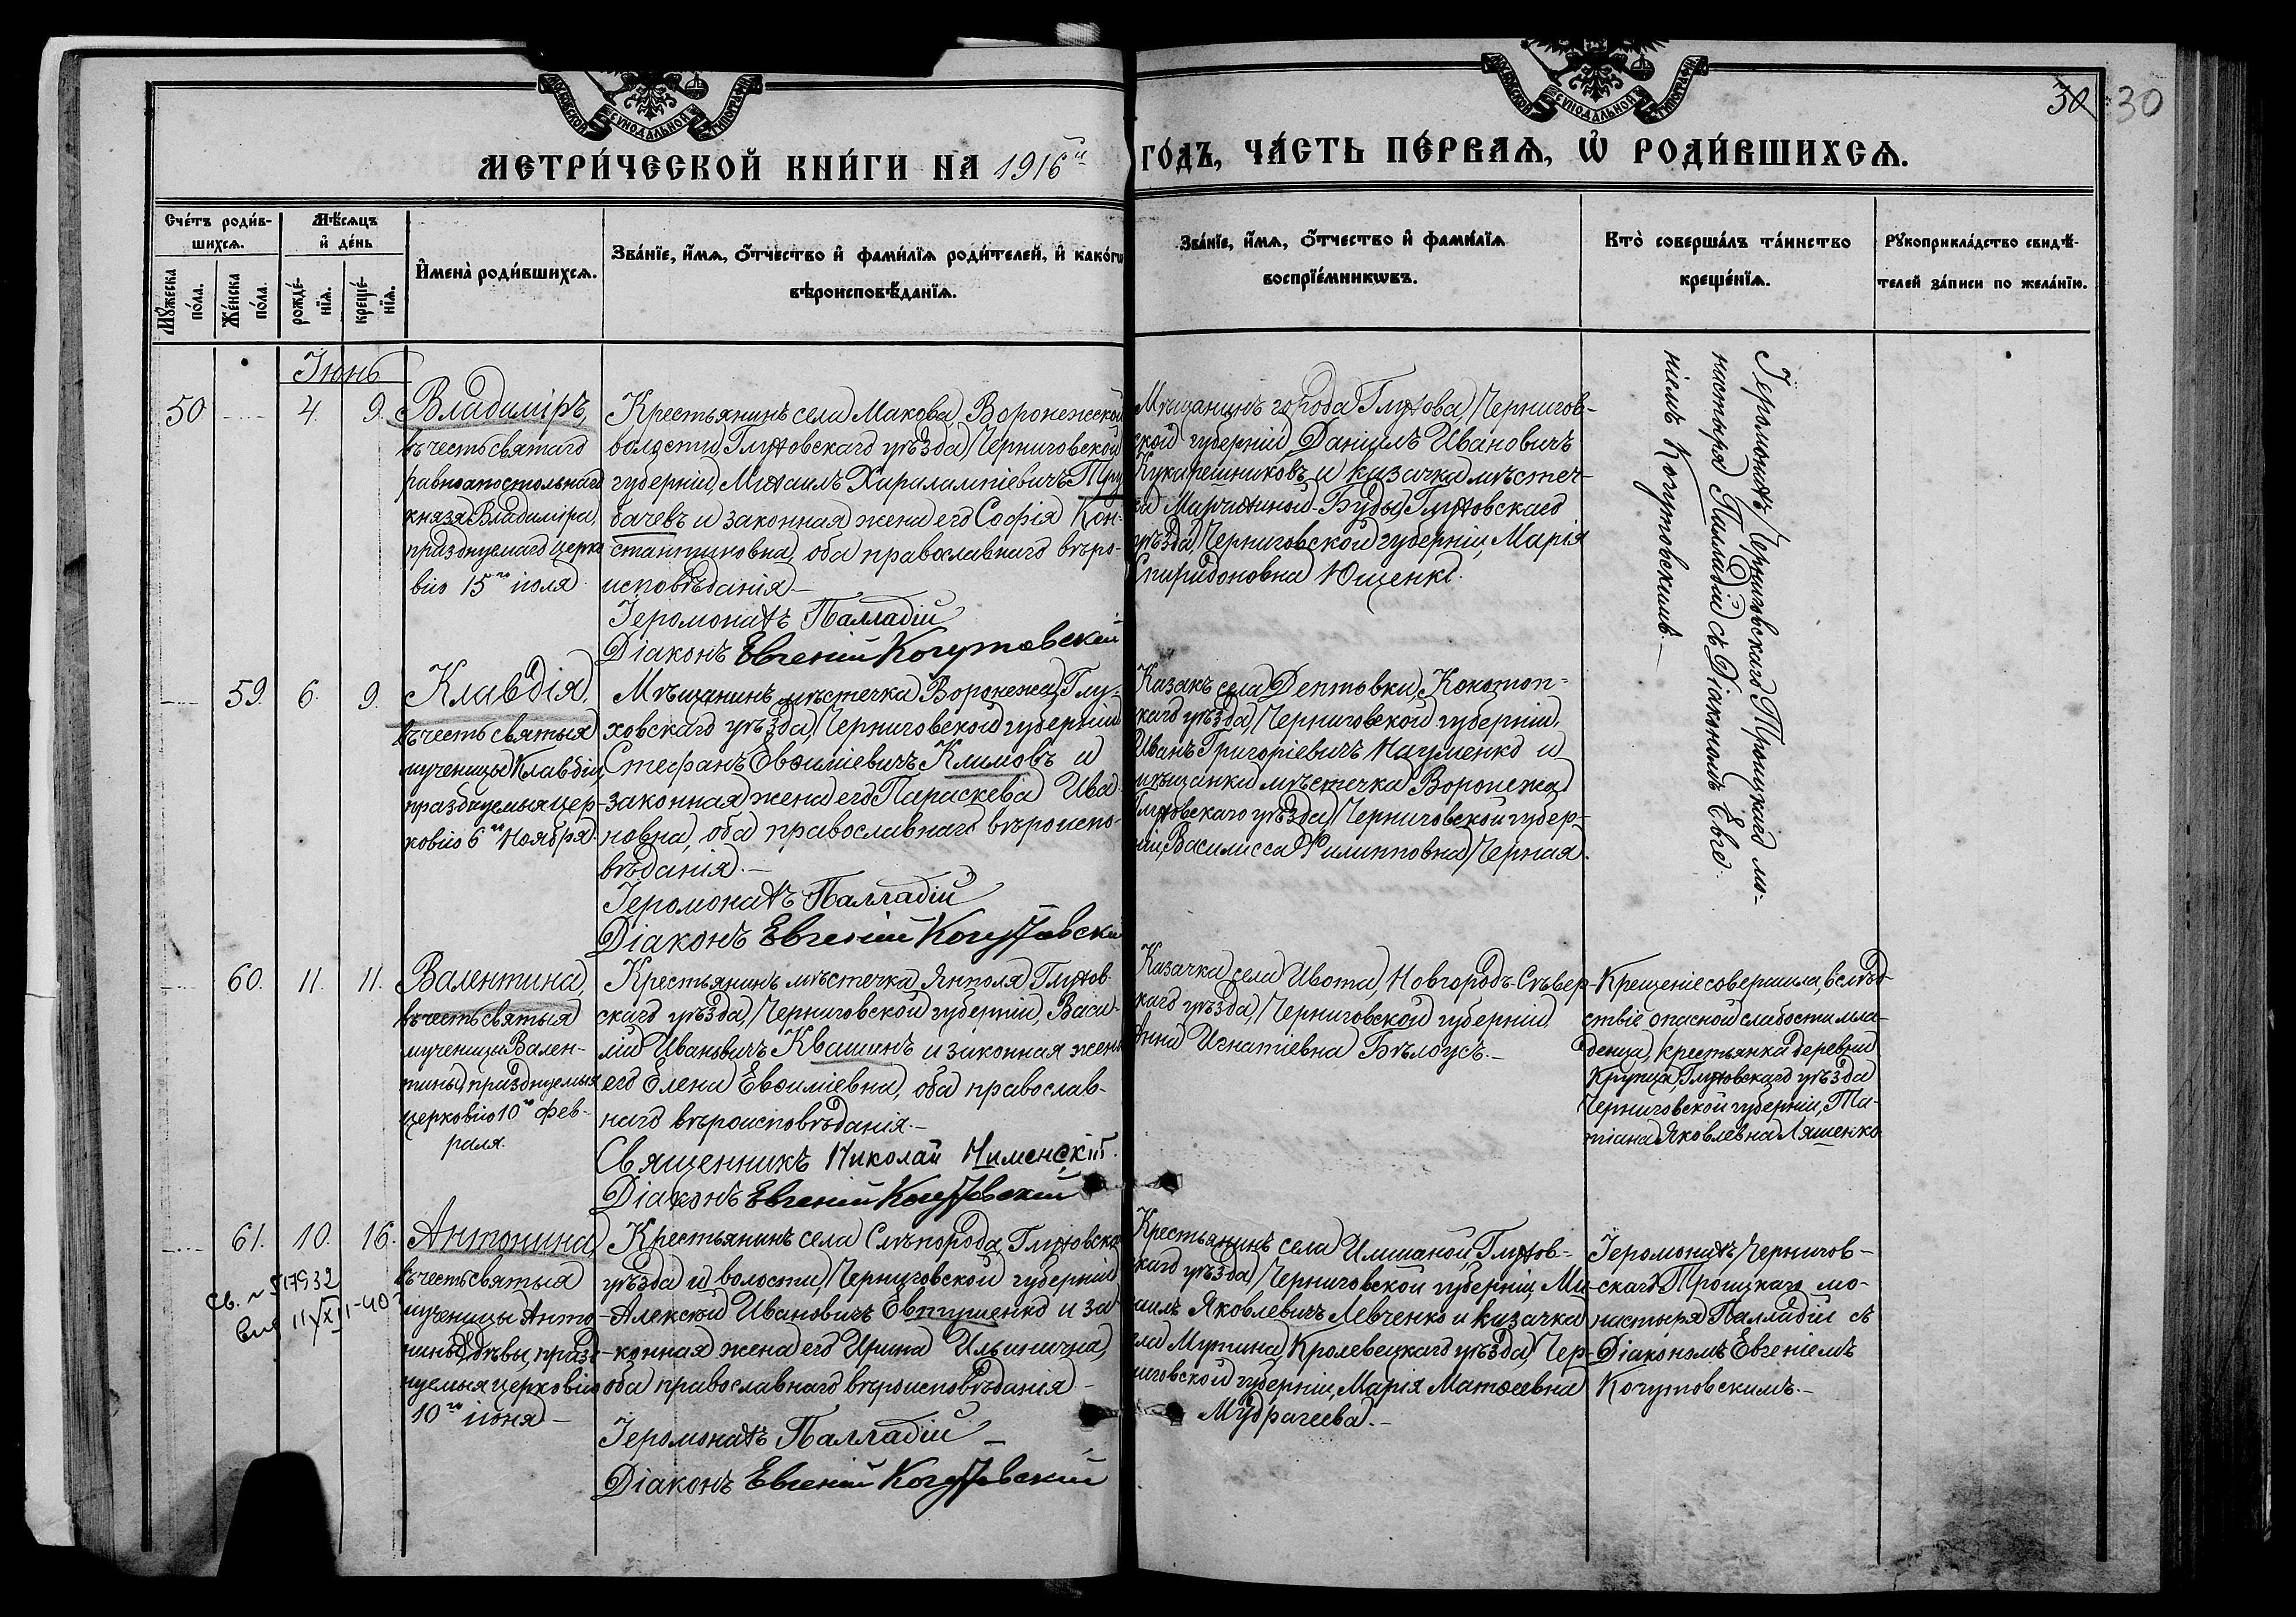 МОСКОВСКОЙ СѴНОДАЛЬНОЙ ТИПОГРАФІИ
МОСКОВСКОЙ СѴНОДАЛЬНОЙ ТИПОГРАФІИ
30 30
МЕТРИ́ЧЕСКОЙ КНИ́ГИ НА 1916й ГО́ДЪ, ЧА́СТЬ ПЕ́РВАѦ, Ѡ҆ РОДИ́ВШИХСѦ.
Сче́тъ роди́в-
шихсѧ.
Мꙋ́жеска
по́ла.
Же́нска
по́ла.
Мѣ́сѧцъ
и҆ де́нь
рожде́-
нїѧ.
креще́-
нїѧ.
И҆мена̀ роди́вшихсѧ.
Зва́нїе, и҆́мѧ, ѻ҆́тчество и҆ фами́лїѧ роди́телей, и҆ како́гѡ
вѣроисповѣ́данїѧ.
Зва́нїе, и҆́мѧ, ѻ҆́тчество и҆ фами́лїѧ
воспрїе́мникѡвъ.
Кто̀ соверша́лъ та́инство
креще́нїѧ.
Рꙋкоприкла́дство свидѣ́-
телей за́писи по жела́нїю.
Іюнь
50 4. 9.
Владиміръ,
въ честь святаго
равноапостольнаго
князя Владиміра,
празднуемаго церко-
вію 15го іюля.
Крестьянинъ села Макова, Воронежской
волости, Глуховскаго уѣзда, Черниговской
губерніи, Михаилъ Харалампіевичъ Тру-
бачевъ и законная жена его Софія Кон-
стантиновна, оба православнаго вѣро-
исповѣданія.—
Іеромонахъ Палладій
Діаконъ Евгеній Кочутовскій
Мѣщанинъ города Глухова, Чернигов-
ской губерніи, Даніилъ Ивановичъ
и казачка мѣстеч-
ка Марчихиной-Буды, Глуховскаго
уѣзда, Черниговской губерніи, Марія
Спиридоновна Ющенко.
Іеромонахъ Черниговскаго Троицкаго мо-
настыря Палладій съ Діакономъ Евге-
ніемъ Кочутовскимъ.—
59. 6. 9.
Клавдія,
въ честь святыя
мученицы Клавдіи,
празднуемыя цер-
ковію 6го Ноября.
Мѣщанинъ мѣстечка Воронежа, Глу-
ховскаго уѣзда, Черниговской губерніи,
Стефанъ Евѳиміевичъ Климовъ и
законная жена его Параскева Ива-
новна, оба православнаго вѣроиспо-
вѣданія.—
Іеромонахъ Палладій
Діаконъ Евгеній Кочутовскій
Казакъ села Дептовки, Конотоп-
скаго уѣзда, Черниговской губерніи,
Иванъ Григоріевичъ Науменко и
мѣщанка мѣстечка Воронежа,
Глуховскаго уѣзда, Черниговской губер-
ніи, Василисса Филипповна Черная.
60. 11. 11.
Валентина,
въ честь святыя
мученицы Вален-
тины, празднуемыя
церковію 10го фев-
раля.
Крестьянинъ мѣстечка Янполя, Глухов-
скаго уѣзда, Черниговской губерніи, Васи-
лій Ивановичъ Квашинъ и законная жена
его Елена Евѳиміевна, оба православ-
наго вѣроисповѣданія.—
Священникъ Николай
Діаконъ Евгеній Кочутовскій
Казачка села Ивота, Новгородъ-Сѣвер-
скаго уѣзда, Черниговской губерніи,
Анна Игнатіевна Бѣлоусъ.—
Крещеніе совершила, вслѣд-
ствіе опасной слабости мла-
денца, крестьянка деревни
Крупца, Глуховскаго уѣзда
Черниговской губерніи, Та-
тіана Яковлевна Ляшенко.
61. 10. 16.
Св. №517932
11/XII-40
Антонина,
въ честь святыя
мученицы Анто-
нины дѣвы, празд-
нуемыя церковію
10го іюня.—
Крестьянинъ села Слѣпорода, Глуховскаго
уѣзда и волости, Черниговской губерніи,
Алексѣй Ивановичъ Евтушенко и за-
конная жена его Ирина Ильинична,
оба православнаго вѣроисповѣданія.—
Іеромонахъ Палладій
Діаконъ Евгеній Кочутовскій
Крестьянинъ села Илшаной, Глухов-
скаго уѣзда, Черниговской губерніи, Ми-
хаилъ Яковлевичъ Левченко и казачка
села Мутина, Кролевецкаго уѣзда, Чер-
ниговской губерніи, Марія Матѳеевна
Мудрачеева.—
Іеромонахъ Чернигов-
скаго Троицкаго мо-
настыря Палладій съ
Діакономъ Евгеніемъ
Кочутовскимъ.—